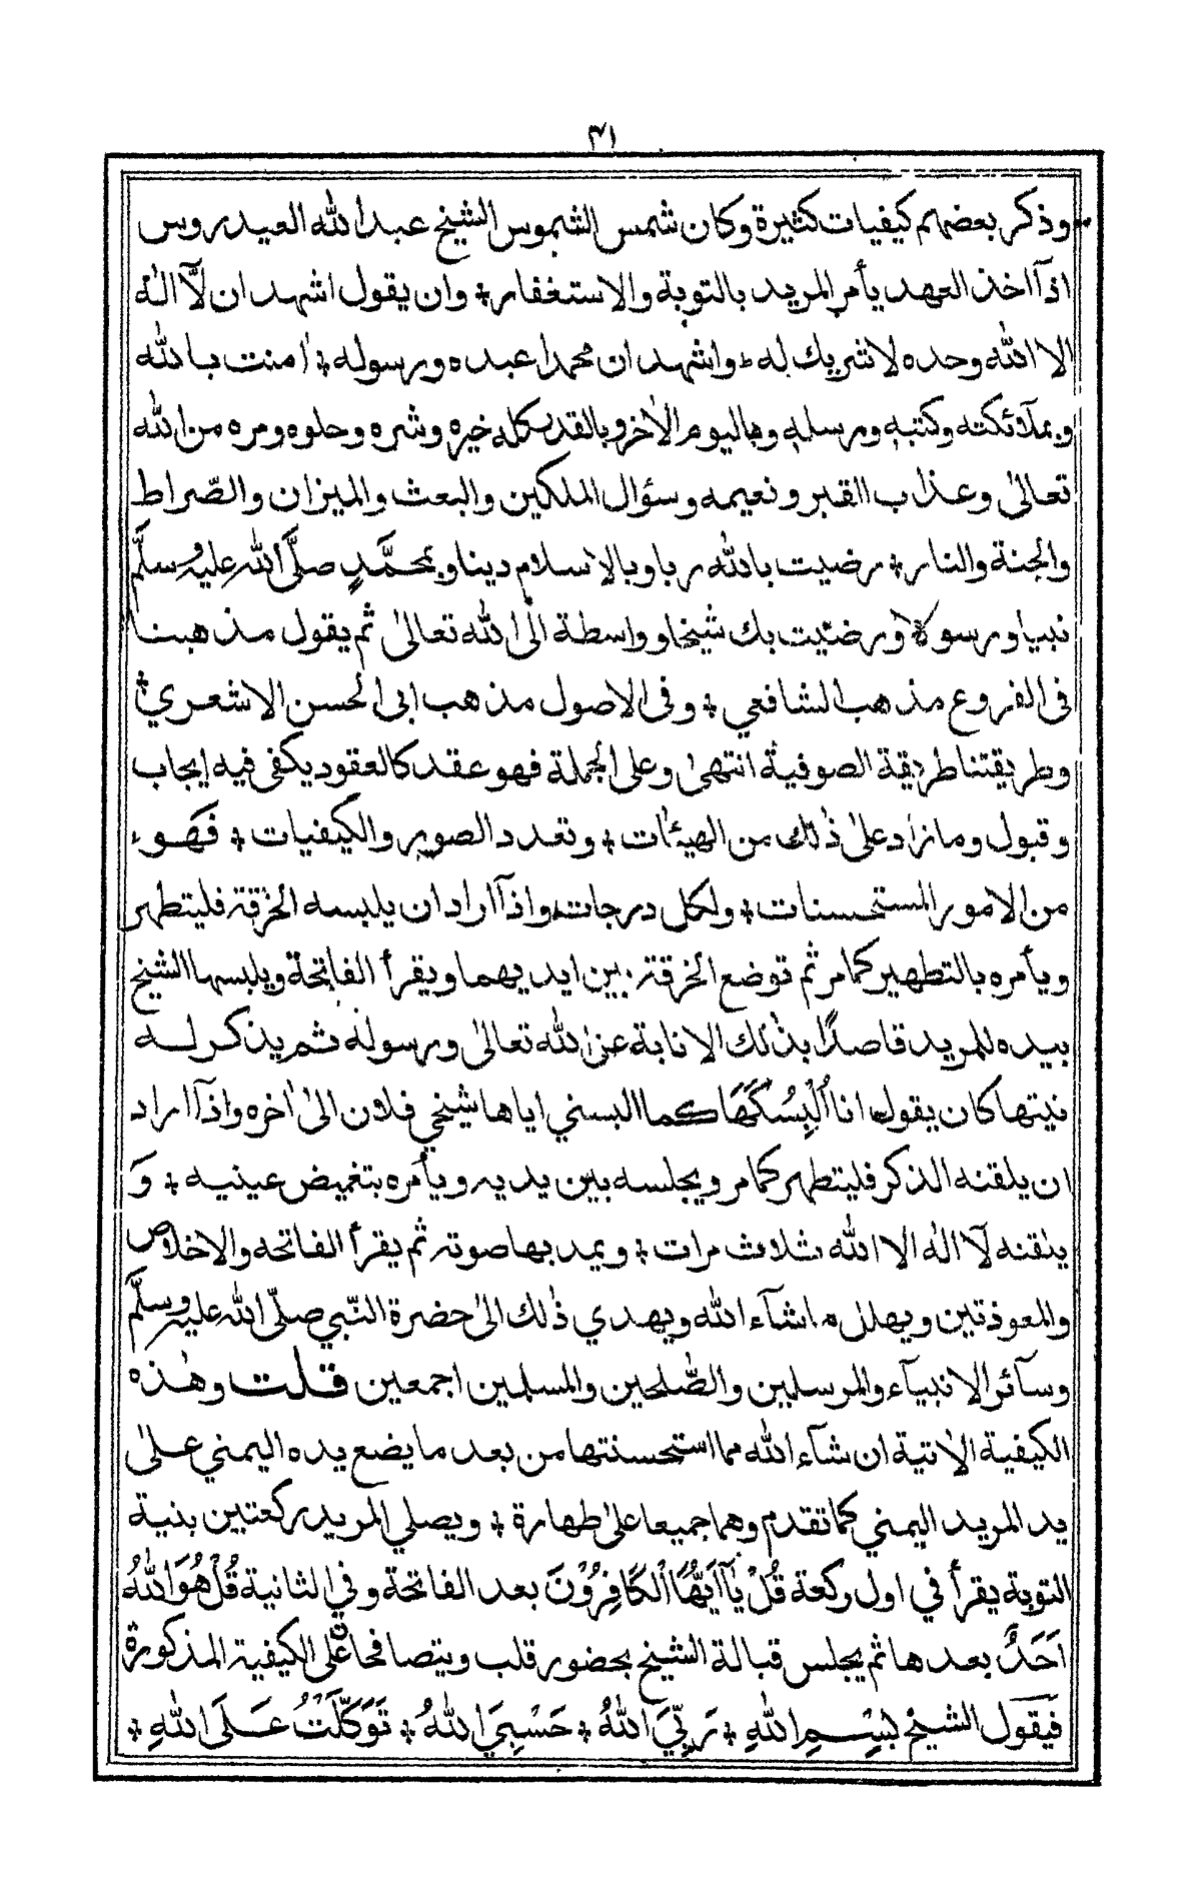 ٣١
وذكر بعضهم كيفيات كثيرة وكان شمس الشموس الشيخ عبد الله العيدروس
اذآ اخذ العهد يأمر المريد بالتوبة والاستغفار ۞ وان يقول اشهد ان لآ اله
الا الله وحده لا شريك له واشهد ان محمدا عبده ورسوله ۞ اٰمنت بالله
وبملآئكته وكتبه ورسله وباليوم الاٰخر وبالقدر كله خيره وشره وحلوه ومره من الله
تعالىٰ وعذاب القبر ونعيمه وسؤال الملكين والبعث والميزان والصّراط
والجنة والنار ۞ رضيت بالله ربا وبالاسلام دينا وبمحمَّدٍ صلَّى الله عليه وسلَّم
نبيا ورسولا ورضيت بك شيخا وواسطة الى الله تعالىٰ ثم يقول مذهبنا
فى الفروع مذهب الشافعي ۞ وفى الاصول مذهب ابى الحسن الاشعري ۞
وطريقتنا طريقة الصوفية انتهىٰ وعلى الجملة فهو عقد كالعقود يكفى فيه ايجاب
وقبول وما زاد علىٰ ذٰلك من الهيئات ۞ وتعدد الصور والكيفيات ۞ فَهَوء
من الامور المستحسنات ۞ ولكل درجات واذآ اراد ان يلبسه الخرقة فليتطهر
ويأمره بالتطهير كما مر ثم توضع الخرقة بين ايديهما ويقرأ الفاتحة ويلبسها الشيخ
بيده للمريد قاصدًا بذٰلك الانابة عن الله تعالىٰ ورسوله ثم يذكر له
نيتها كان يقول انا اُلْبِسُكَهَا كما البسني اياها شيخي فلان الىٰ اٰخره واذآ اراد
ان يلقنه الذكر فليتطهر كما مر ويجلسه بين يديه ويأمره بتغميض عينيه ۞ وَ
يلقنه لآ اله الا الله ثلاث مرات ۞ ويمد بها صوته ثم يقرأ الفاتحه والاخلاص
والمعوذتين ويهلل ما شآء الله ويهدي ذٰلك الىٰ حضرة النّبي صلّى الله عليه وسلَّم
وسآئر الانبيآء والمرسلين والصّٰلحين والمسلمين اجمعين قلت وهٰذه
الكيفية الاٰتية ان شآء الله مما استحسنتها من بعد ما يضع يده اليمني علىٰ
يد المريد اليمني كما تقدم وهما جميعا علىٰ طهارة ۞ ويصلي المريد ركعتين بنية
التوبة يقرأ في اول ركعة قُلْ يَآ اَيُّهَا الْكَافِرُوْنَ بعد الفاتحة وفي الثانية قُلْ هُوَ اللهُ
اَحَدٌ بعدها ثم يجلس قبالة الشيخ بحضور قلب ويتصافحا على الكيفية المذكورة
فَيقول الشيخ بِسْمِ اللهِ ۞ رَبِّيَ اللهُ ۞ حَسْبِيَ اللهُ ۞ تَوَكَّلْتُ عَلَى اللهِ ۞